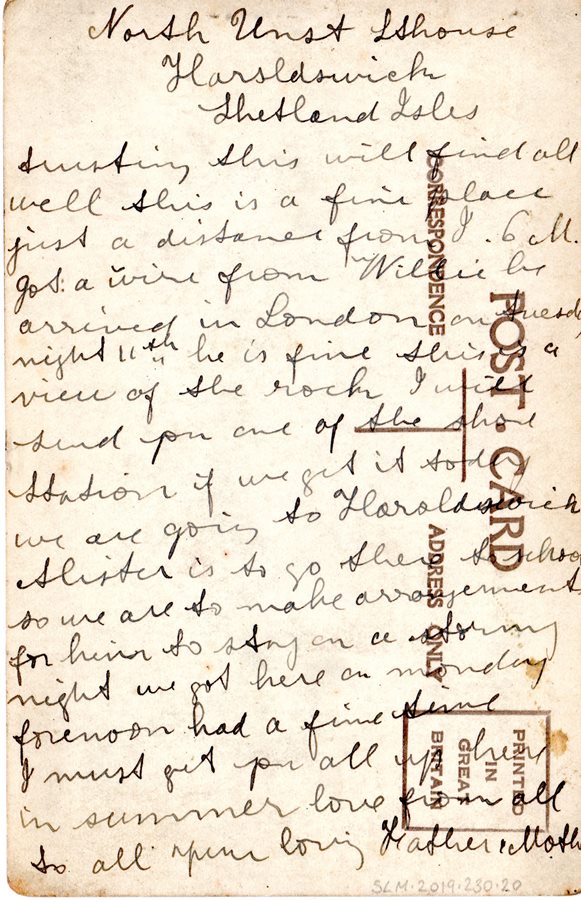 North Unst Lthouse
Haroldswick
Shetland Isles
trusting this will find all
well this is a fine place
just a distance from I. 6 M.
got a wire from Willie he
arrived in London on tuesday
night 11th he is fine this is a
view of the rock I will
send you one of the shore
station if we get it today
we are going to Haroldswick
Alister is to go there to school
so we are to make arrangement
for him to stay on a stormy
night we got here on monday
forenoon had a fine time
I must get you all up here
in summer love from all
to all your loving Father & Moth
POST CARD
CORRESPONDENCE
ADDRESS ONLY
PRINTED
IN
GREAT
BRITAIN
SLM.2019.230.20